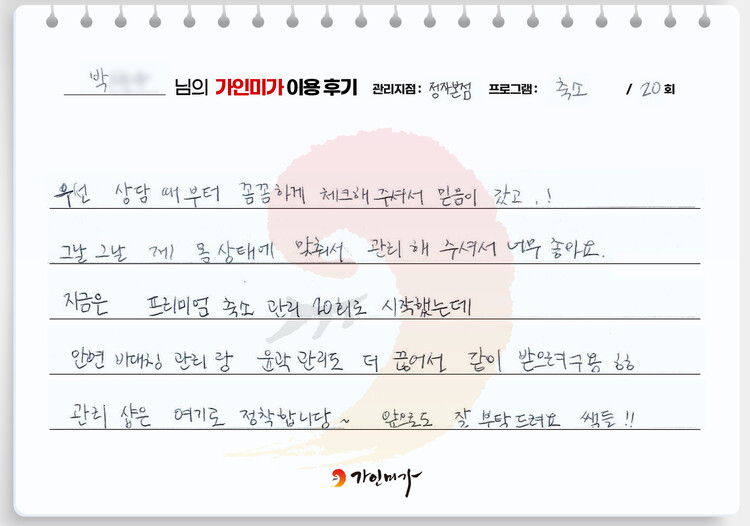 박 님의 가인미가 이용 후기 관리지점 : 정자본점 프로그램 : 축소 / 20 회
우선 상담 때부터 꼼꼼하게 체크해 주셔서 믿음이 갔고 . !
그날 그날 제 몸 상태에 맞춰서 관리 해 주셔서 너무 좋아요.
지금은 프리미엄 축소 관리 20회로 시작했는데
안면 비대칭 관리 랑 윤곽 관리도 더 끊어서 같이 받으려구용 ㅎㅎ
관리 샵은 여기로 정착합니당 ~ 앞으로도 잘 부탁 드려요 쌤들 !!
가인미가